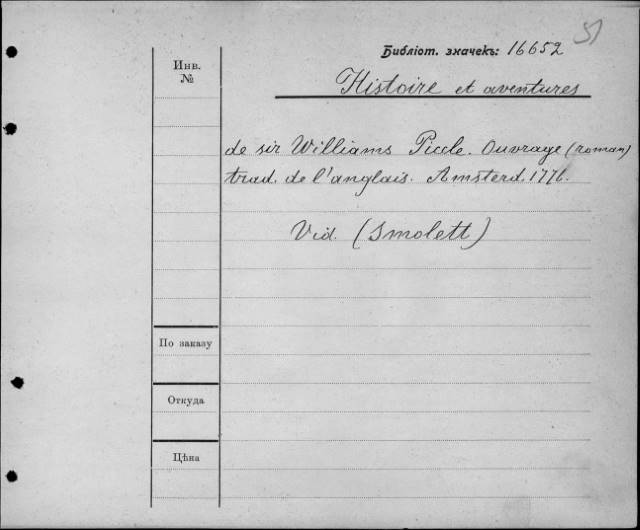 51
Библіот. значекъ: 16652
Инв. №
Histoire et aventures
de sir Williams Piccle. Ouvrage (roman)
trad. de l'anglais. Amsterd. 1776.
Vid. (Smolett)
По заказу
Откуда
Цѣна